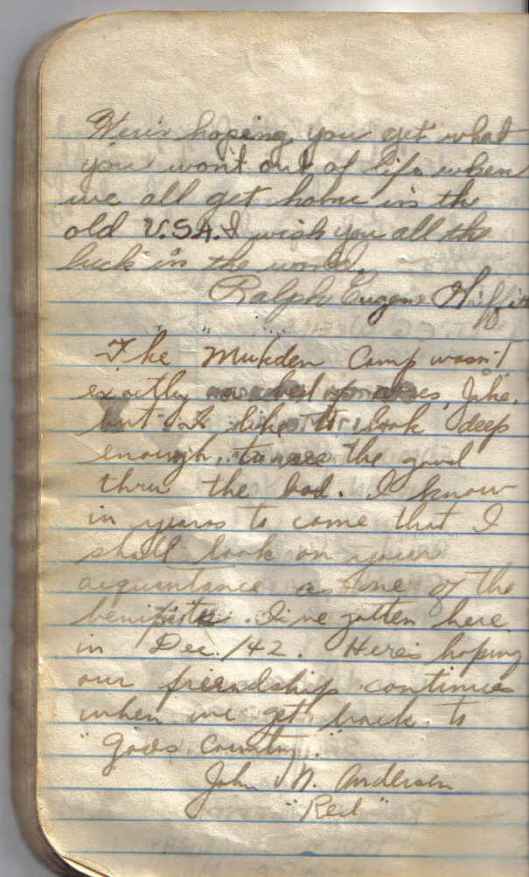 Here's hoping you get what
you won't out of life when
we all get home in the
old U.S.A. I wish you all the
luck in the world.
Ralph Eugene
"The Mukden Camp wasn't
exactly a bed of roses, Jake,
but I like to look deep
enough to see the good
thru the bad. I know
in years to come that I
shall look on your
acquintance as one of the
benifits I've gotten here
in Dec. /42. Here's hoping
our friendship continues
when we get back to
"Gods Country."
John N. Andersen
"Red"